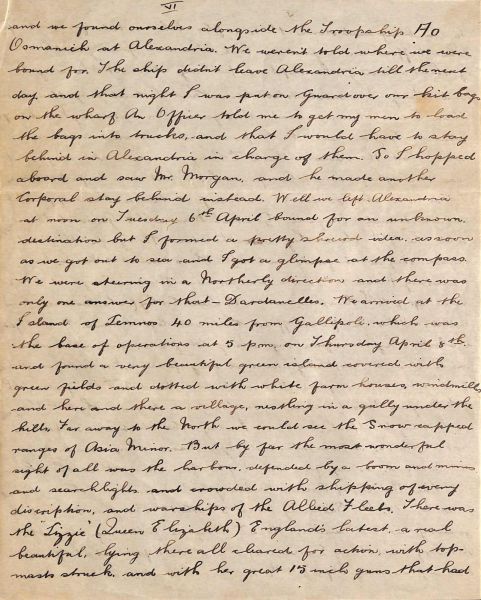 VI
and we found ourselves alongside the Troopship A6
Osmanieh at Alexandria. We weren't told where we were
bound for. The ship didn't leave Alexandria till the next
day, and that night I was put on Guard over our kit bags
on the wharf. An Officer told me to get my men to load
the bags into trucks, and that I would have to stay
behind in Alexandria in charge of them. So I hopped
aboard and saw Mr. Morgan, and he made another
Corporal stay behind instead. Well we left Alexandria
at noon on Tuesday 6th April bound for an unknown
destination but I formed a pretty shrewd idea, as soon
as we got out to sea and I got a glimpse at the compass.
We were steering in a Northerly direction and there was
only one answer for that – Dardanelles. We arrived at the
Island of Lemnos 40 miles from Gallipoli, which was
the base of operations at 5 pm, on Thursday April 8th.
and found a very beautiful green island covered with
green fields and dotted with white farm houses, windmills
and here and there a village, nestling in a gully under the
hills. Far away to the North we could see the Snow capped
ranges of Asia Minor. But by far the most wonderful
sight of all was the harbour, defended by a boom and mines
and searchlights and crowded with shipping of every
discription, and warships of the Allied Fleets. There was
the "Lizzie" (Queen Elizabeth) England's latest, a real
beautiful, lying there all cleared for action, with top-
masts struck, and with her great 15 inch guns that had